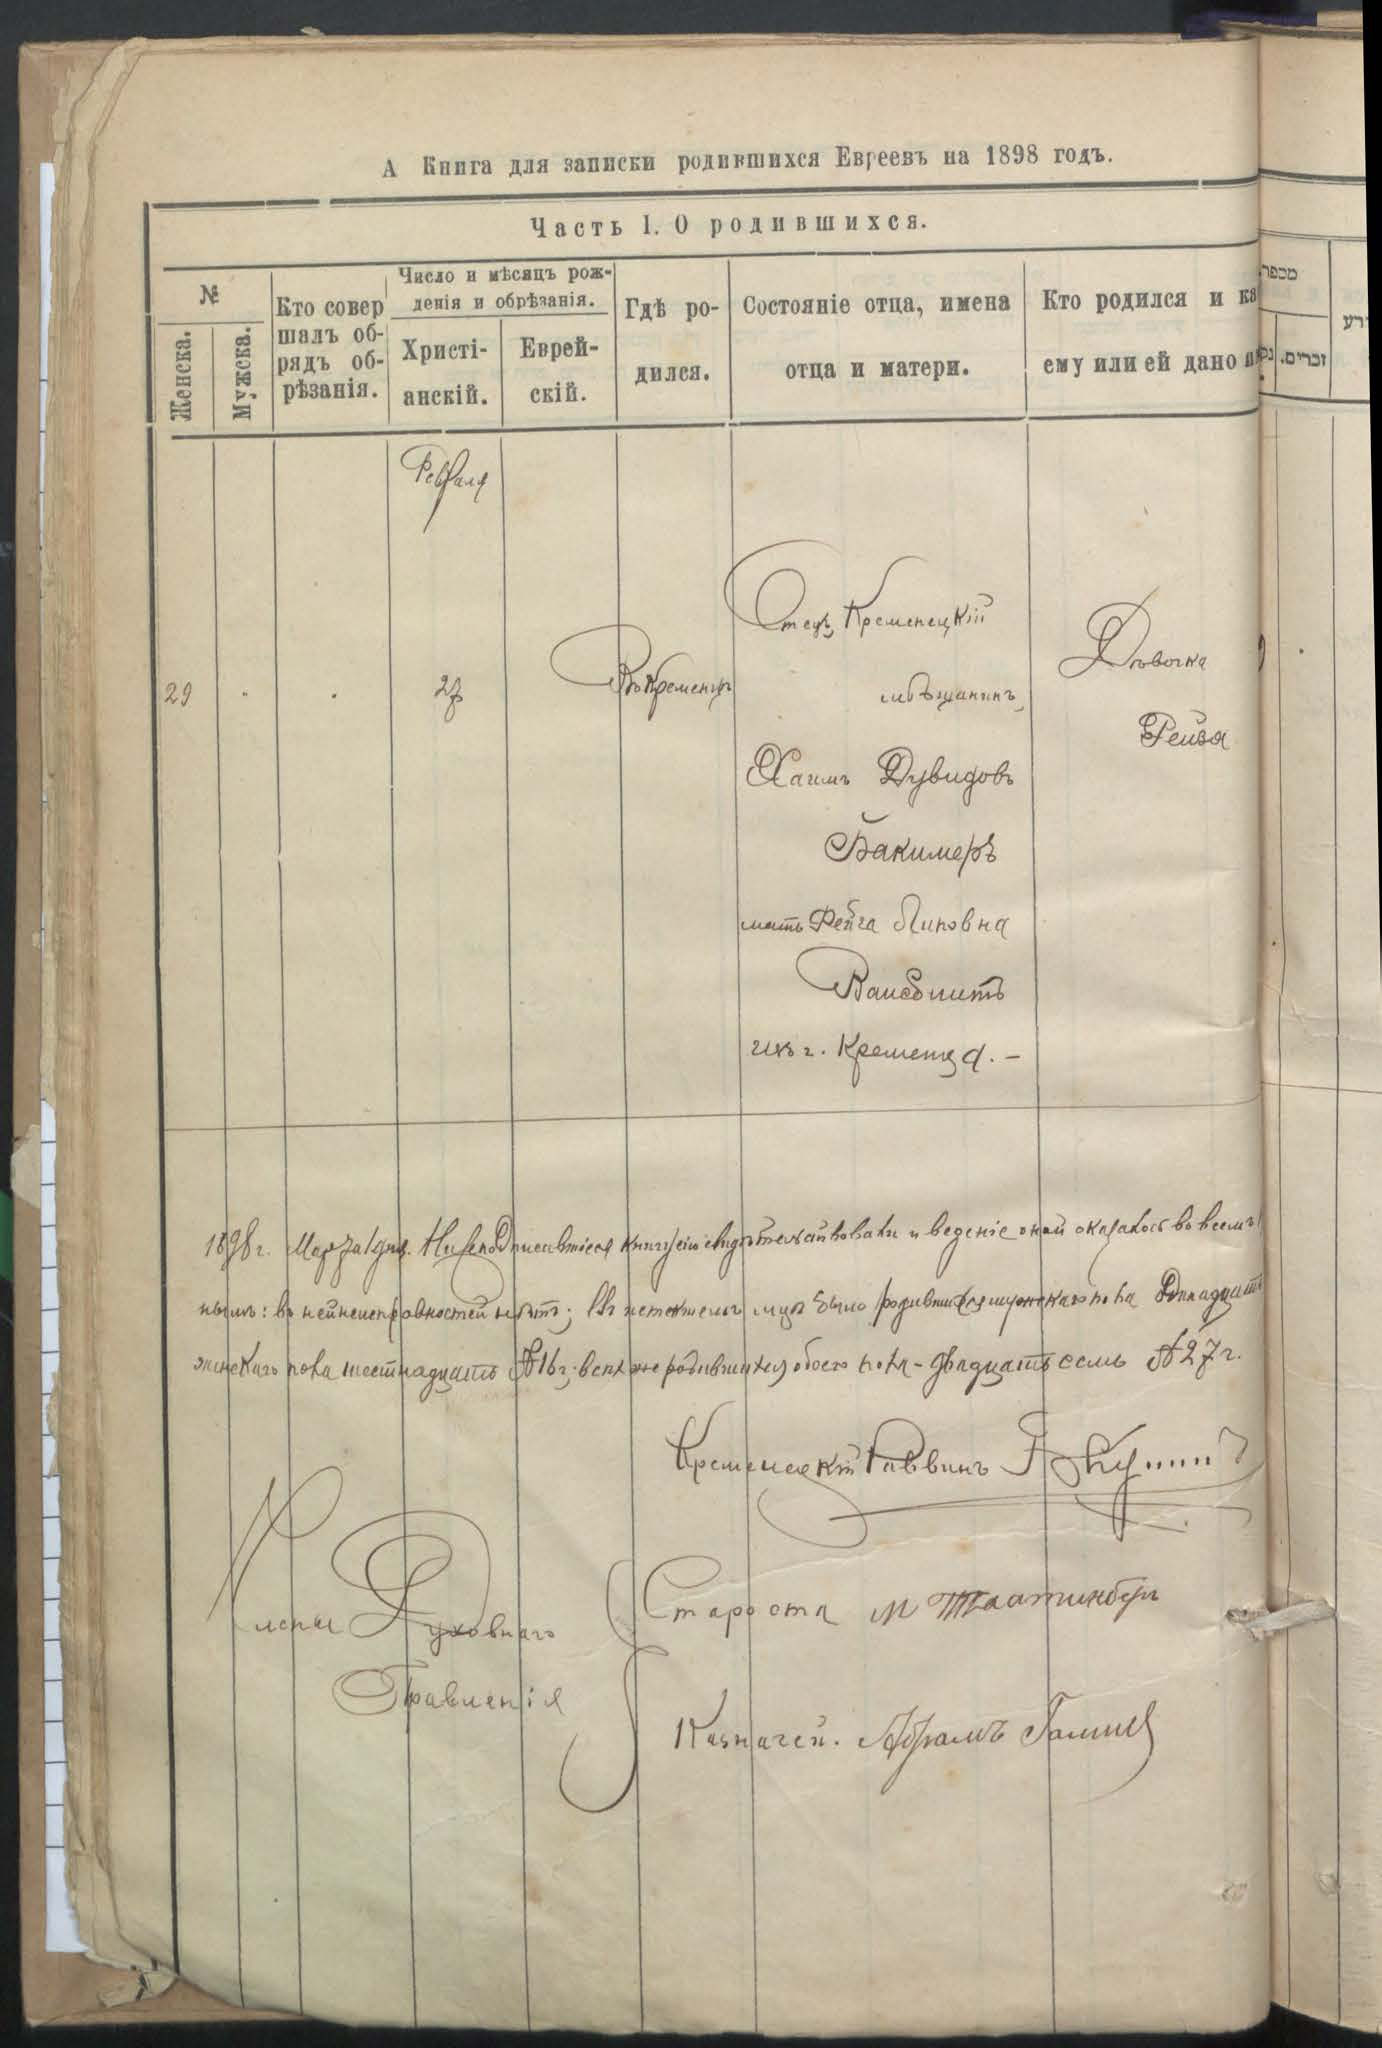 А Книга для записки родившихся Евреевъ на 1898 годъ.
Часть I. О родившихся.
№
Женска.
Мужска.
Кто совер
шалъ об-
рядъ об-
рѣзанія.
Число и мѣсяцъ рож-
денія и обрѣзанія.
Христі-
анскій.
Еврей-
скій.
Гдѣ ро-
дился.
Состояніе отца, имена
отца и матери.
Кто родился и ка
ему или ей дано
מכפר
זכרים.
Февраля
29
27
Въ Кременцѣ
Отецъ Кременецкій
мѣщанинъ
Хаимъ Дувидовъ
Бакимеръ
мать Фейга Липовна
изъ г. Кременца. –
Дѣвочка
Рейзя
1898 г. Марта 1 дня. Нижеподписавшіеся книгу сію свидѣтельствовали и веденіе оной оказалось во всемъ
нымъ: въ ней неисправностей нѣтъ; въ истекшемъ м-цѣ было родившихся мужскаго пола
женскаго пола шестнадцать № 16 г; всѣхъ же родившихся обоего пола - двадцать семь № 27 г.
Кременецкій Раввинъ
Члены Духовнаго
Правленія
Староста М
Казначей. Абрамъ